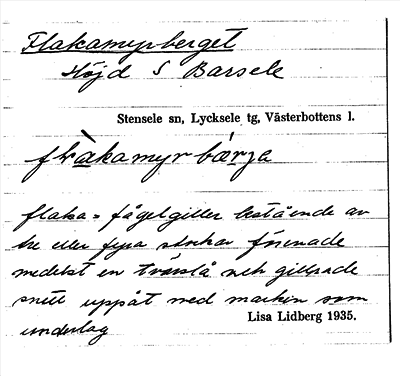 Flakamyrberget
Höjd S Barsele
Stensele sn, Lycksele tg, Västerbottens l.
flakamyrbærja
flaka = fågelgiller bestående av
tre eller fyra stockar förenade
medelst en tvärslå och gillrade
snett uppåt med marken som
underlag
Lisa Lidberg 1935.